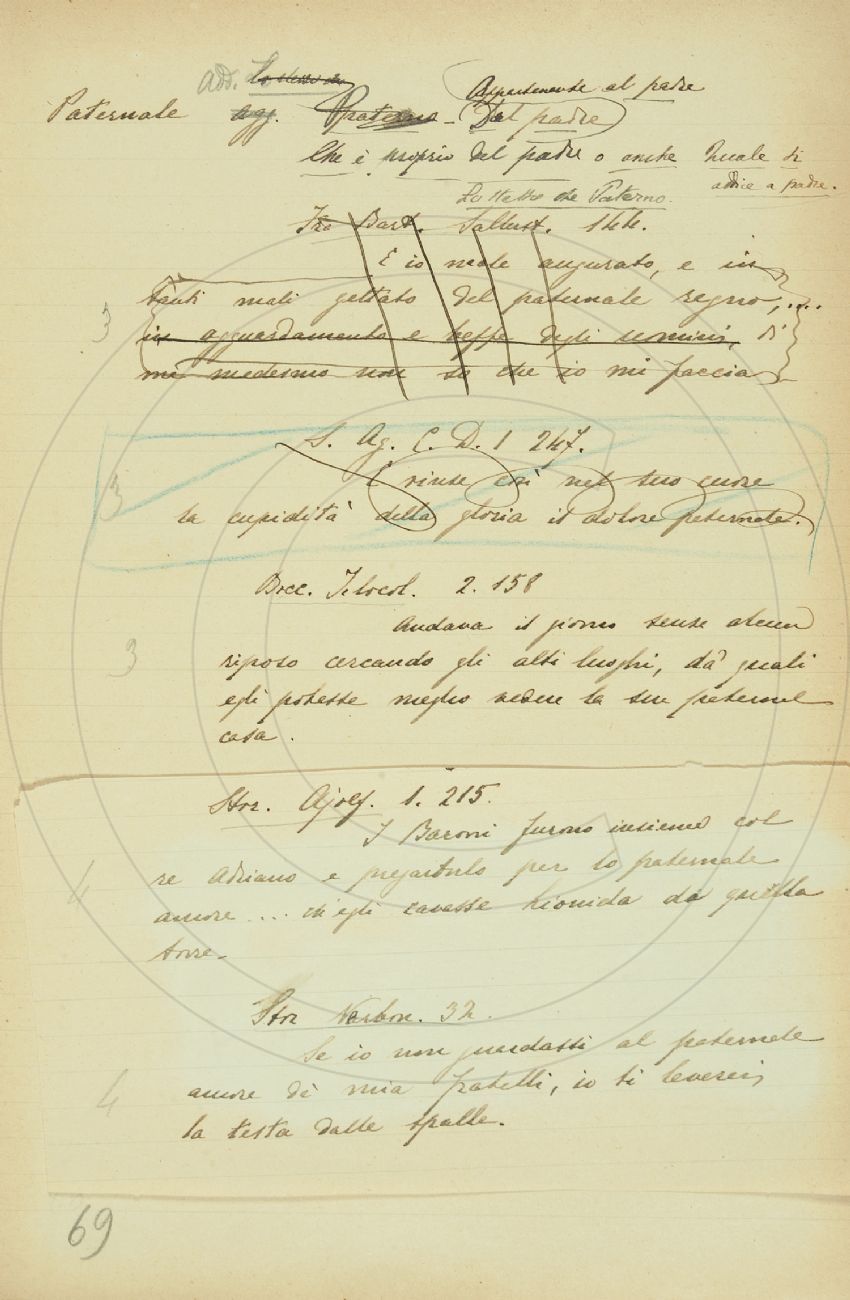 Add. Lo stesso che
Appartenente al padre
Paternale agg. Paterno - Del padre
Che è proprio del padre o anche Quale si
addice a padre.
Lo stesso che Paterno.
Fra Bart. Sallust. 144.
E io male augurato, e in
tanti mali gettato del paternale regno, ....
in agguardamento e beffe degli uomini, di
me medesimo non so che io mi faccia
3
S. Ag. C. D. 1 247.
E vinse così nel suo cuore
la cupidità della gloria il dolore paternale.
3
Bocc. Filocol. 2. 158
Andava il giorno senza alcun
riposo cercando gli alti luoghi, da' quali
egli potesse meglio vedere la sua paternal
casa.
3
Stor. Ajolf. 1. 215.
I Baroni furono insieme col
re Adriano e pregarlo per lo paternale
amore .... ch'egli cavasse da quella
torre.
4
Stor Nerbon. 32.
Se io non guardassi al paternale
amore de' mia fratelli, io ti leverei
la testa dalle spalle.
4
69